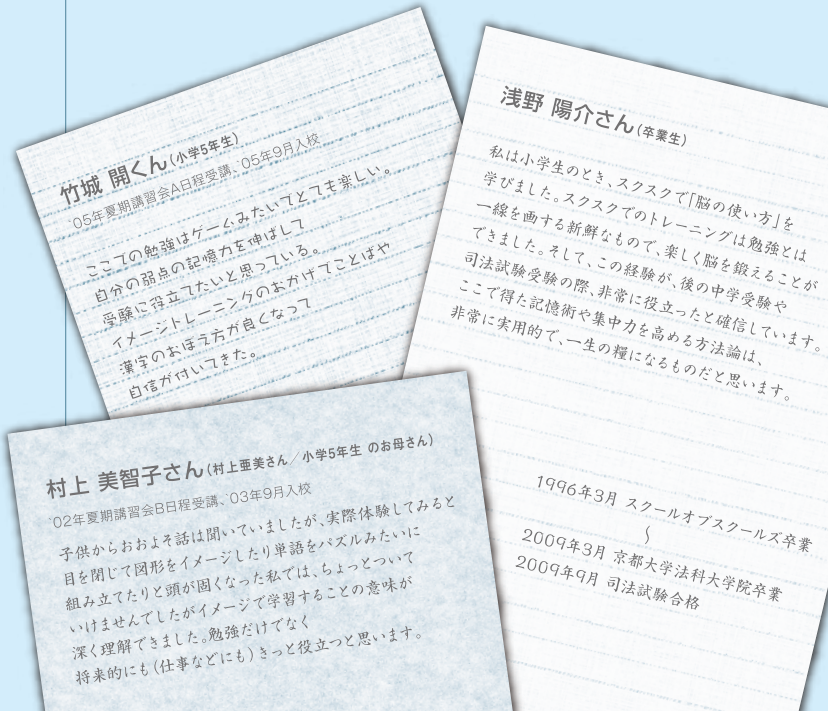 竹城 開くん(小学5年生)
'05年夏期講習会A日程受講、'05年9月入校
ここでの勉強はゲームみたいでとても楽しい。
自分の弱点の記憶力を伸ばして
受験に役立てたいと思っている。
イメージトレーニングのおかげでことばや
漢字のおぼえ方が良くなって
自信が付いてきた。
浅野 陽介さん(卒業生)
私は小学生のとき、スクスクで「脳の使い方」を
学びました。スクスクでのトレーニングは勉強とは
一線を画する新鮮なもので、楽しく脳を鍛えることが
できました。そして、この経験が、後の中学受験や
司法試験受験の際、非常に役立ったと確信しています。
ここで得た記憶術や集中力を高める方法論は、
非常に実用的で、一生の糧になるものだと思います。
1996年3月 スクールオブスクールズ卒業
〜
2009年3月 京都大学法科大学院卒業
2009年9月 司法試験合格
村上 美智子さん(村上亜美さん/小学5年生 のお母さん)
'02年夏期講習会B日程受講、'03年9月入校
子供からおおよそ話は聞いていましたが、実際体験してみると
目を閉じて図形をイメージしたり単語をパズルみたいに
組み立てたりと頭が固くなった私では、ちょっとついて
いけませんでしたがイメージで学習することの意味が
深く理解できました。勉強だけでなく
将来的にも(仕事などにも)きっと役立つと思います。